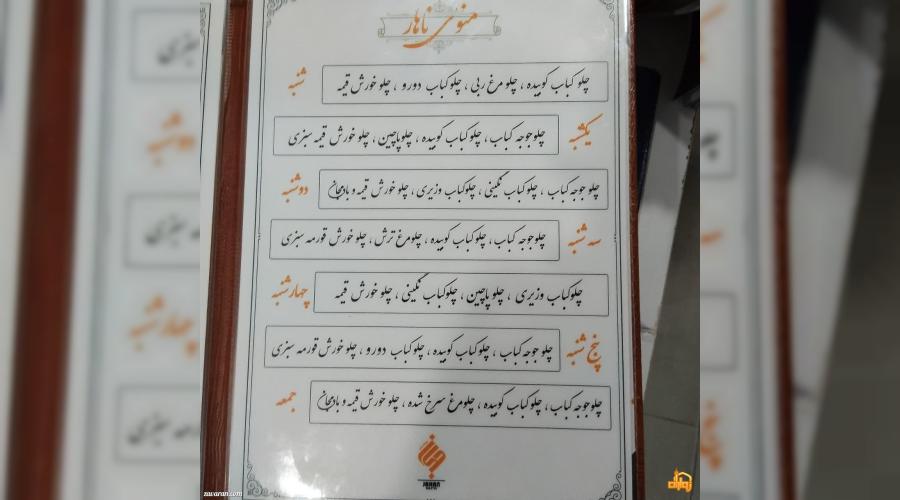 منوی ناهار
شنبه
چلو کباب کوبیده ، چلو مرغ ربی ، چلو کباب دورو ، چلو خورش قیمه
یکشبه
چلو جوجه کباب ، چلو کباب کوبیده ، چلو پاچین ، چلو خورش قیمه سبزی
دوشنبه
چلو جوجه کباب ، چلو کباب نگینی ، چلو کباب وزیری ، چلو خورش قیمه و بادمجان
سه شنبه
چلو جوجه کباب ، چلو کباب کوبیده ، چلو مرغ ترش ، چلو خورش قورمه سبزی
چهارشنبه
چلو کباب وزیری ، چلو پاچین ، چلو کباب نگینی ، چلو خورش قیمه
پنج شنبه
چلو جوجه کباب ، چلو کباب کوبیده ، چلو کباب دورو ، چلو خورش قورمه سبزی
جمعه
چلو جوجه کباب ، چلو کباب کوبیده ، چلو مرغ سرخ شده ، چلو خورش قیمه و بادمجان
JAHAN
zavaran.com
زوران